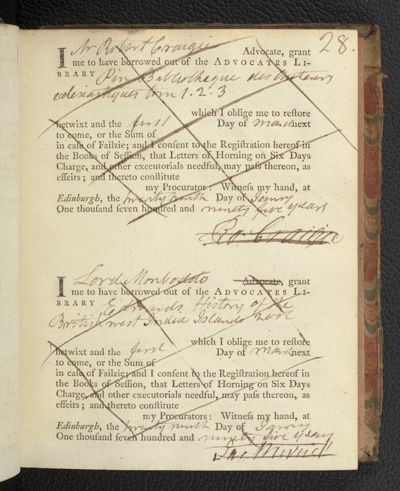 28.
I Mr Robert Craigie Advocate, grant
me to have borrowed out of the ADVOCATES LI-
BRARY Pin Bibliotheque des Auteurs
eclesiastiques tom 1. 2. 3
which I oblige me to reſtore
betwixt and the first Day of March next
to come, or the Sum of
in caſe of Failzie; and I conſent to the Regiſtration hereof in
the Books of Seſſion, that Letters of Horning on Six Days
Charge, and other executorials needful, may paſs thereon, as
effeirs; and thereto conſtitute
my Procurator: Witneſs my hand, at
Edinburgh, the twenty ninth Day of Janry
One thouſand ſeven hundred and ninety five years
Ro: Craigie
I Lord Monboddo Advocate, grant
me to have borrowed out of the ADVOCATES LI-
BRARY Edwards History of the
British west India Islands
which I oblige me to reſtore
betwixt and the first Day of March next
to come, or the Sum of
in caſe of Failzie; and I conſent to the Regiſtration hereof in
the Books of Seſſion, that Letters of Horning on Six Days
Charge, and other executorials needful, may paſs thereon, as
effeirs; and thereto conſtitute
my Procurators: Witneſs my hand, at
Edinburgh, the twenty ninth Day of Janry
One thouſand ſeven hundred and ninety five years